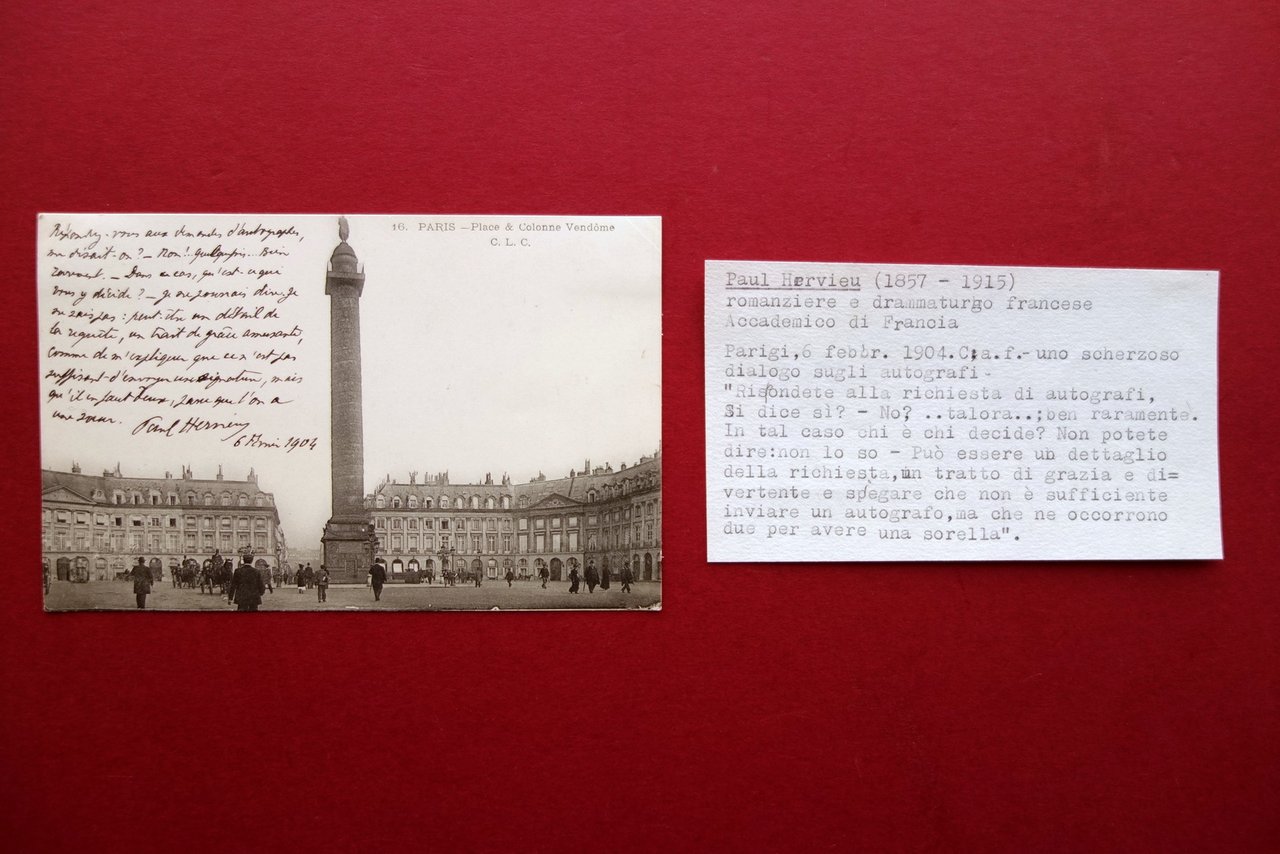 Répondez-vous aux demandes d'autographes,
me disait-on ? — Non ! quelquefois.. Bien
rarement. — Dans ce cas, qu'est-ce qui
vous y décide ? — Je ne pourrais dire. Je
ne sais pas : peut-être un détail de
la requête, un trait de grâce amusante,
comme de m'expliquer que ce n'est pas
suffisant d'envoyer une signature, mais
qu'il en faut deux, parce que l'on a
une sœur.
Paul Hervieu
6 février 1904
16. PARIS — Place & Colonne Vendôme
C. L. C.
Paul Hervieu (1857 - 1915)
romanziere e drammaturgo francese
Accademico di Francia
Parigi,6 febbr. 1904.C.a.f.- uno scherzoso
dialogo sugli autografi -
"Rispondete alla richiesta di autografi,
Si dice sì? - No? ..talora..;ben raramente.
In tal caso chi è chi decide? Non potete
dire:non lo so - Può essere un dettaglio
della richiesta,un tratto di grazia e di=
vertente e spegare che non è sufficiente
inviare un autografo,ma che ne occorrono
due per avere una sorella".